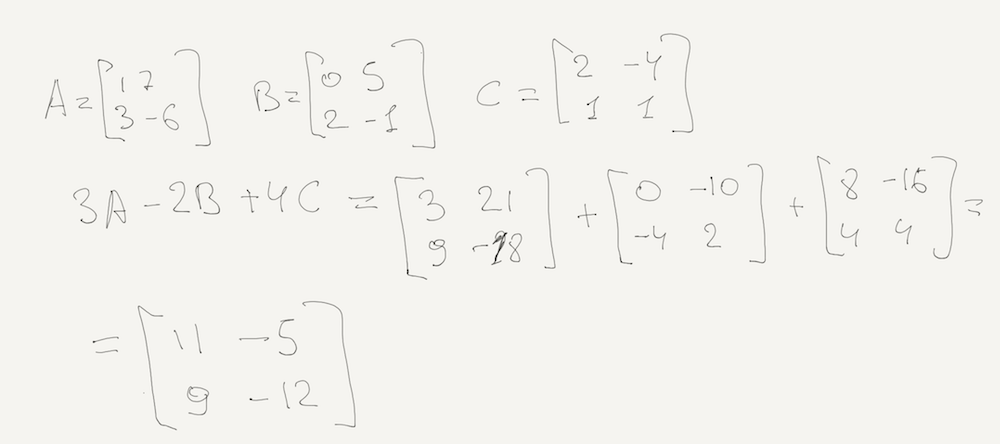 A = [1 7; 3 -6] B = [0 5; 2 -1] C = [2 -4; 1 1]
3A - 2B + 4C = [3 21; 9 -18] + [0 -10; -4 2] + [8 -16; 4 4] =
= [11 -5; 9 -12]